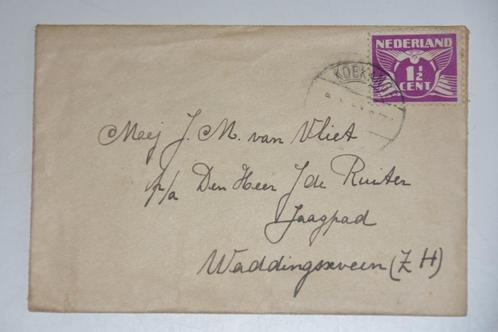 NEDERLAND
1½
CENT
Mej J. M. van Vliet
p/a Den Heer J de Ruiter
Jaagpad
Waddingsveen (Z H)